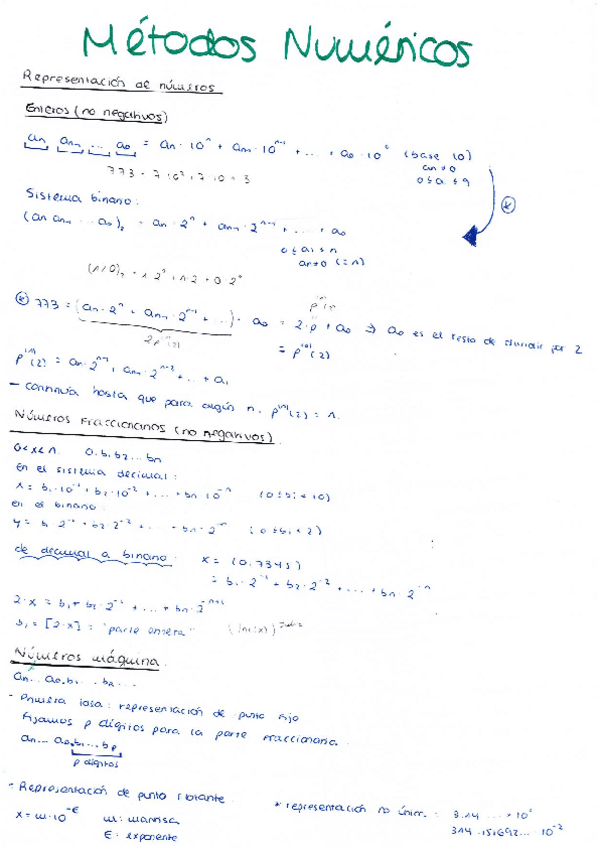 Métodos Numéricos
Representación de números
Enteros (no negativos)
an an-1 ... a0 = an · 10^n + an-1 · 10^n-1 + ... + a0 · 10^0 (base 10)
an ≠ 0
0 ≤ ai ≤ 9
773 = 7·10² + 7·10 + 3
Sistema binario:
(an an-1 ... a0)₂ = an · 2^n + an-1 · 2^n-1 + ... + a0
an ≠ 0 (=1)
(110)₂ = 1·2² + 1·2 + 0·2^0
* 773 = (an · 2^n + an-1 · 2^n-1 + ...) + a0 = 2·p + a0 ⇒ a0 es el resto de dividir por 2
= an · 2^n-1 + an-1 · 2^n-2 + ... + a1
- continúa hasta que para algún n, p^(n)(2) = 1.
Números Fraccionarios (no negativos)
0<x<1 0.b1b2...bn
en el sistema decimal:
x = b1·10^-1 + b2·10^-2 + ... + bn·10^-n (0≤bi<10)
en el binario:
y = b1·2^-1 + b2·2^-2 + ... + bn·2^-n (0≤bi<2)
de decimal a binario: x = (0.7345)
= b1·2^-1 + b2·2^-2 + ... + bn·2^-n
2·x = b1 + b2·2^-1 + ... + bn·2^-n+1
b1 = [2·x] = "parte entera"
Números máquina
an... a0.b1... bn...
- Primera idea: representación de punto fijo
Fijamos p dígitos para la parte fraccionaria.
an... a0.b1...bp
p dígitos
- Representación de punto flotante
x = m·10^-E m: mantisa
E: exponente
* representación no únic.: 3.14 ... · 10^0
314.151692... 10^-2